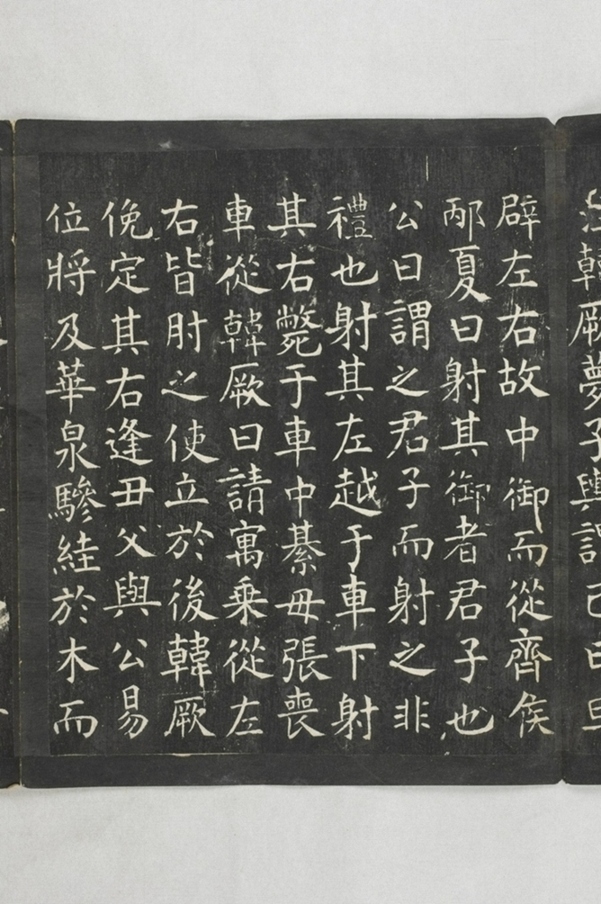 韓厥夢子輿謂己曰旦
辟左右故中御而從齊侯
邴夏曰射其御者君子也
公曰謂之君子而射之非
禮也射其左越于車下射
其右斃于車中綦毋張喪
車從韓厥曰請寓乘從左
右皆肘之使立於後韓厥
俛定其右逢丑父與公易
位將及華泉驂絓於木而